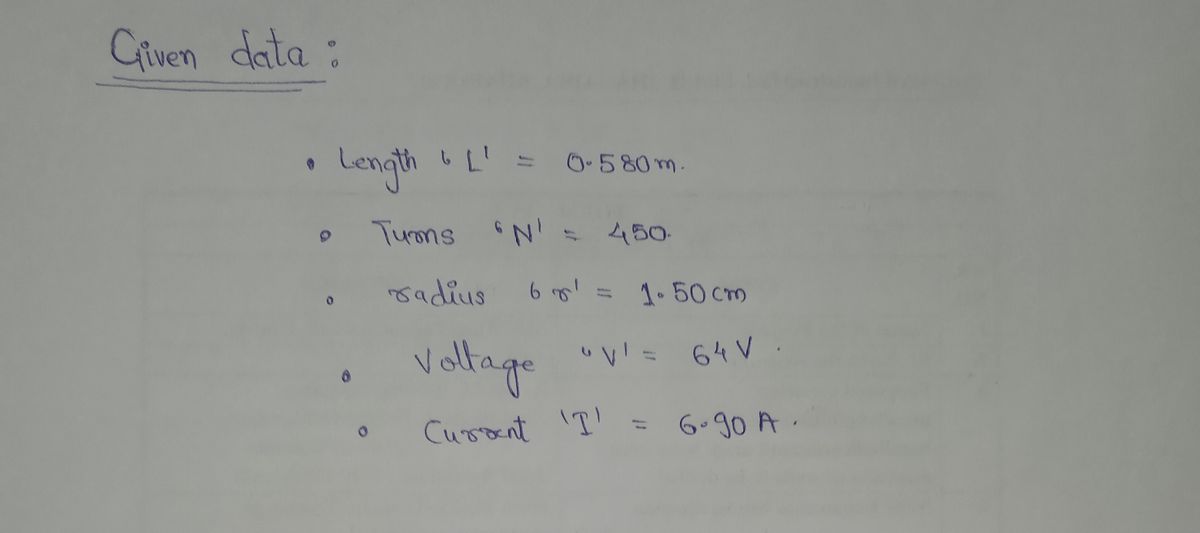 Given data :
• Length 'L' = 0.580m.
• Turns 'N' = 450.
• radius 'r' = 1.50cm
• Voltage 'V' = 64 V.
• Current 'I' = 6.90 A.